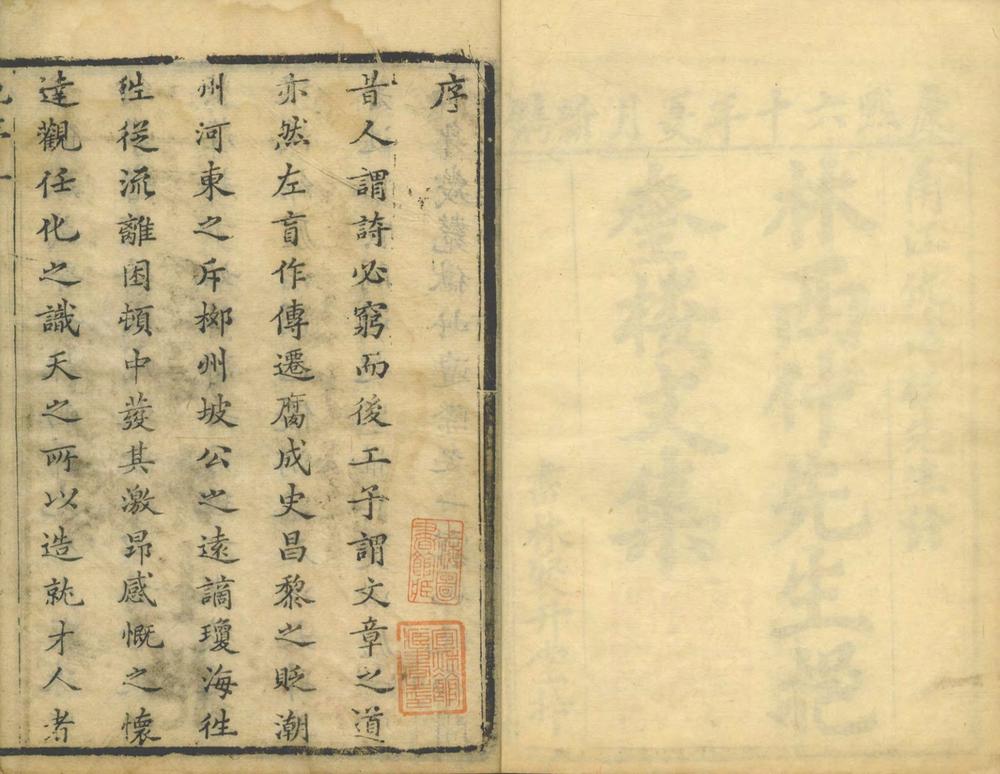 康熙六十年夏月
林西仲先生挹
奎樓文集
序
昔人謂詩必窮而後工予謂文章之道
亦然左盲作傳遷腐成史昌黎之貶潮
州河東之斥栁州坡公之遠謫瓊海徃
徃從流離困頓中發其激昂感慨之懷
達觀任化之識天之所以造就才人者
上海圖書館藏